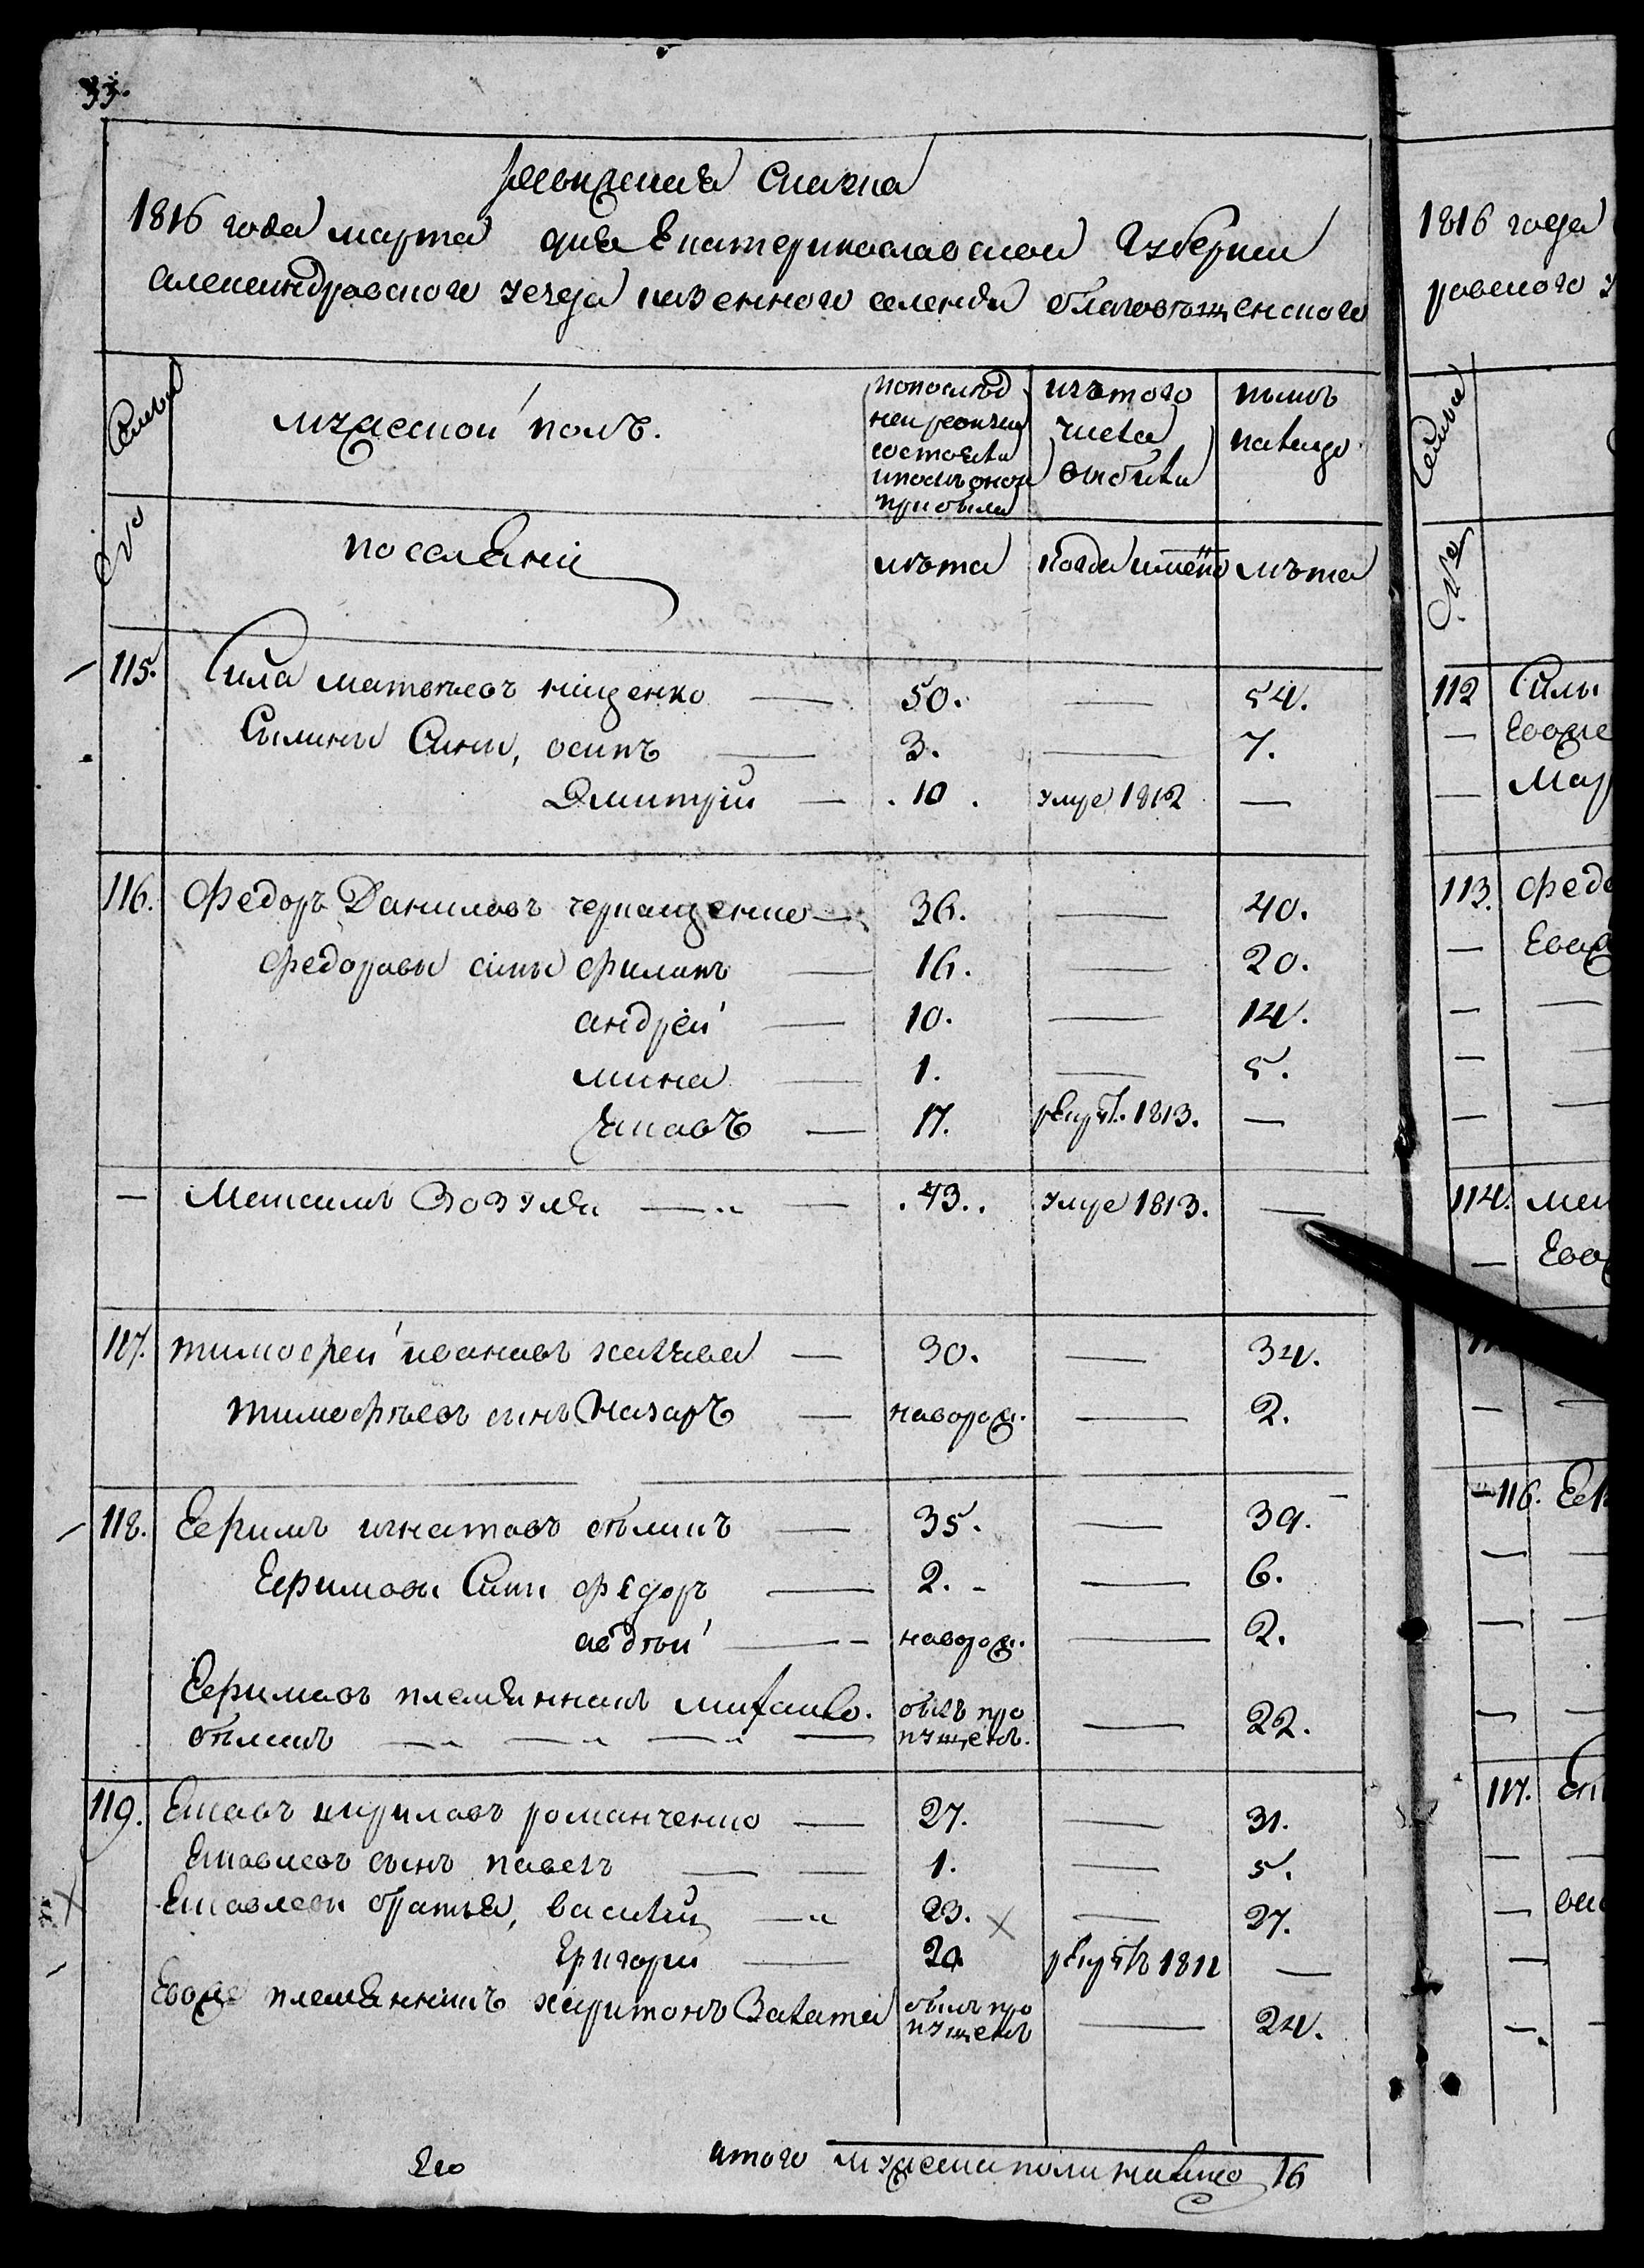 33.
Ревизская Сказка
1816 года марта дня Екатеринославской Губернии
александровского уезда казенного селения благовѣщенского
Семьи
мужеской полъ.
попослѣд
ней ревизии
состояло
ипослѣ оной
прибыло
изътого
числа
выбыло
нынѣ
налицо
№
поселяни
лѣта
когда имено
лѣта
115. Сила матвѣевъ нищенко — 50. — 54.
Силины Сины, осипъ — 3. — 7.
Дмитрий — 10. умре 1812 —
116. Федоръ Даниловъ черкащенко — 36. — 40.
Федоровы сины филипъ — 16. — 20.
андрей — 10. — 14.
мина — 1. — 5.
Яковъ — 17. рекрут. 1813. —
— Максимъ Зозуля — 43. умре 1813. —
117. тимофей ивановъ халява — 30. — 34.
тимофѣевъ сынъ Назаръ — новорож. — 2.
118. Ефимъ игнатовъ бѣликъ — 35. — 39.
Ефимовы Сины федоръ — 2. — 6.
авдѣй — новорож. — 2.
Ефимовъ племянникъ михайло. былъ про — 22.
бѣликъ — пущенъ.
119. Яковъ кириловъ романченко — 27. — 31.
Яковлевъ сынъ павелъ — 1. — 5.
Яковлевы братья, василий — 23. — 27.
Григорий — 20. рекрутъ 1811 —
Евоже племянникъ харитонъ Залата былъ про — 24.
пущенъ
итого мужеска пола налицо 16
1816 года
ровского у
Семьи
№
112 Силы
— Евоже
— Мар
113. федо
— Евод
114. мак
— Ево
116. Еф
117.